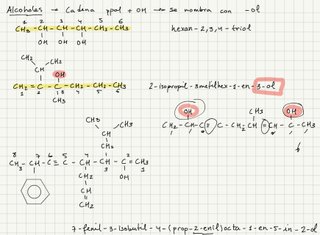 Alcoholes → Cadena ppal + OH → Se nombra con -ol
6 5 4 3 2 1
CH3 - CH - CH - CH - CH - CH3
OH OH OH
hexan-2,3,4-triol
CH3
CH - CH3
OH
CH2 = C - C - CH2 - CH2 - CH3
1 2 3 4 5 6
CH3
2-isopropil-3metilhex-1-en-3-ol
OH CH3 OH
CH3 - CH - C = C - CH2 - CH2 - CH - C = C - CH - C - CH3
CH3 CH3
CH
8 7 6 5 4 3 2 1
CH3 - CH - C ≡ C - CH - CH - C = CH
CH2 CH2 OH
CH
CH2
7-fenil-3-isobutil-4-(prop-2-enil)octa-1-en-5-in-2-ol